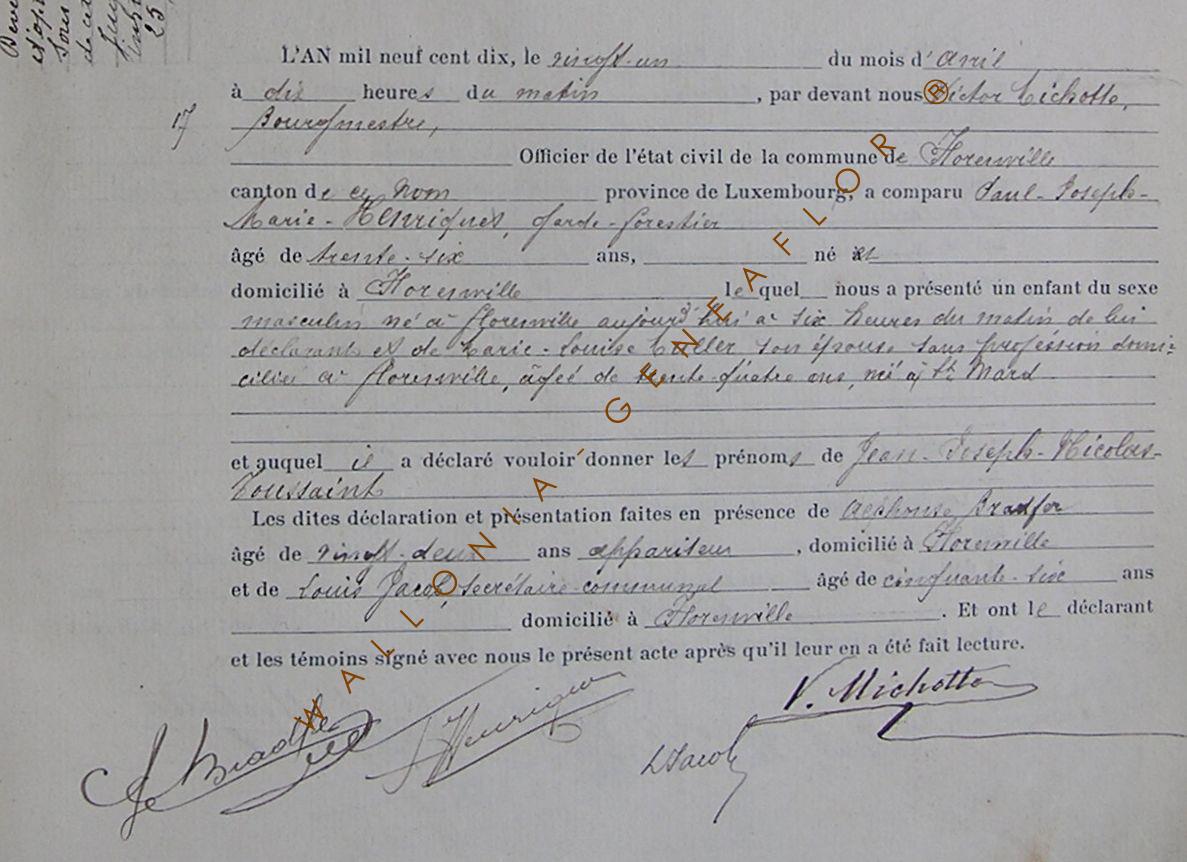 17
L'AN mil neuf cent dix, le vingt-un du mois d'avril
à dix heures du matin, par devant nous Victor Michotte,
Bourgmestre,
Officier de l'état civil de la commune de Florenville
canton de ce nom province de Luxembourg, a comparu Paul-Joseph-
Marie-Henriquet, garde-forestier
âgé de trente-six ans, né et
domicilié à Florenville lequel nous a présenté un enfant du sexe
masculin né à Florenville aujourd'hui à six heures du matin de lui
déclarant et de Marie-Louise son épouse sans profession domi-
ciliée à Florenville, âgée de trente-quatre ans, née à St Mard
et auquel il a déclaré vouloir donner les prénoms de Jean-Joseph-Nicolas-
Toussaint
Les dites déclaration et présentation faites en présence de Alphonse Bradfer
âgé de vingt-deux ans appariteur, domicilié à Florenville
et de Louis Jacob, secrétaire communal âgé de cinquante-six ans
domicilié à Florenville. Et ont le déclarant
et les témoins signé avec nous le présent acte après qu'il leur en a été fait lecture.
V. Michotte
A Bradfer
Henriquet
L Jacob
WALLONIA GENEAFLOR ®